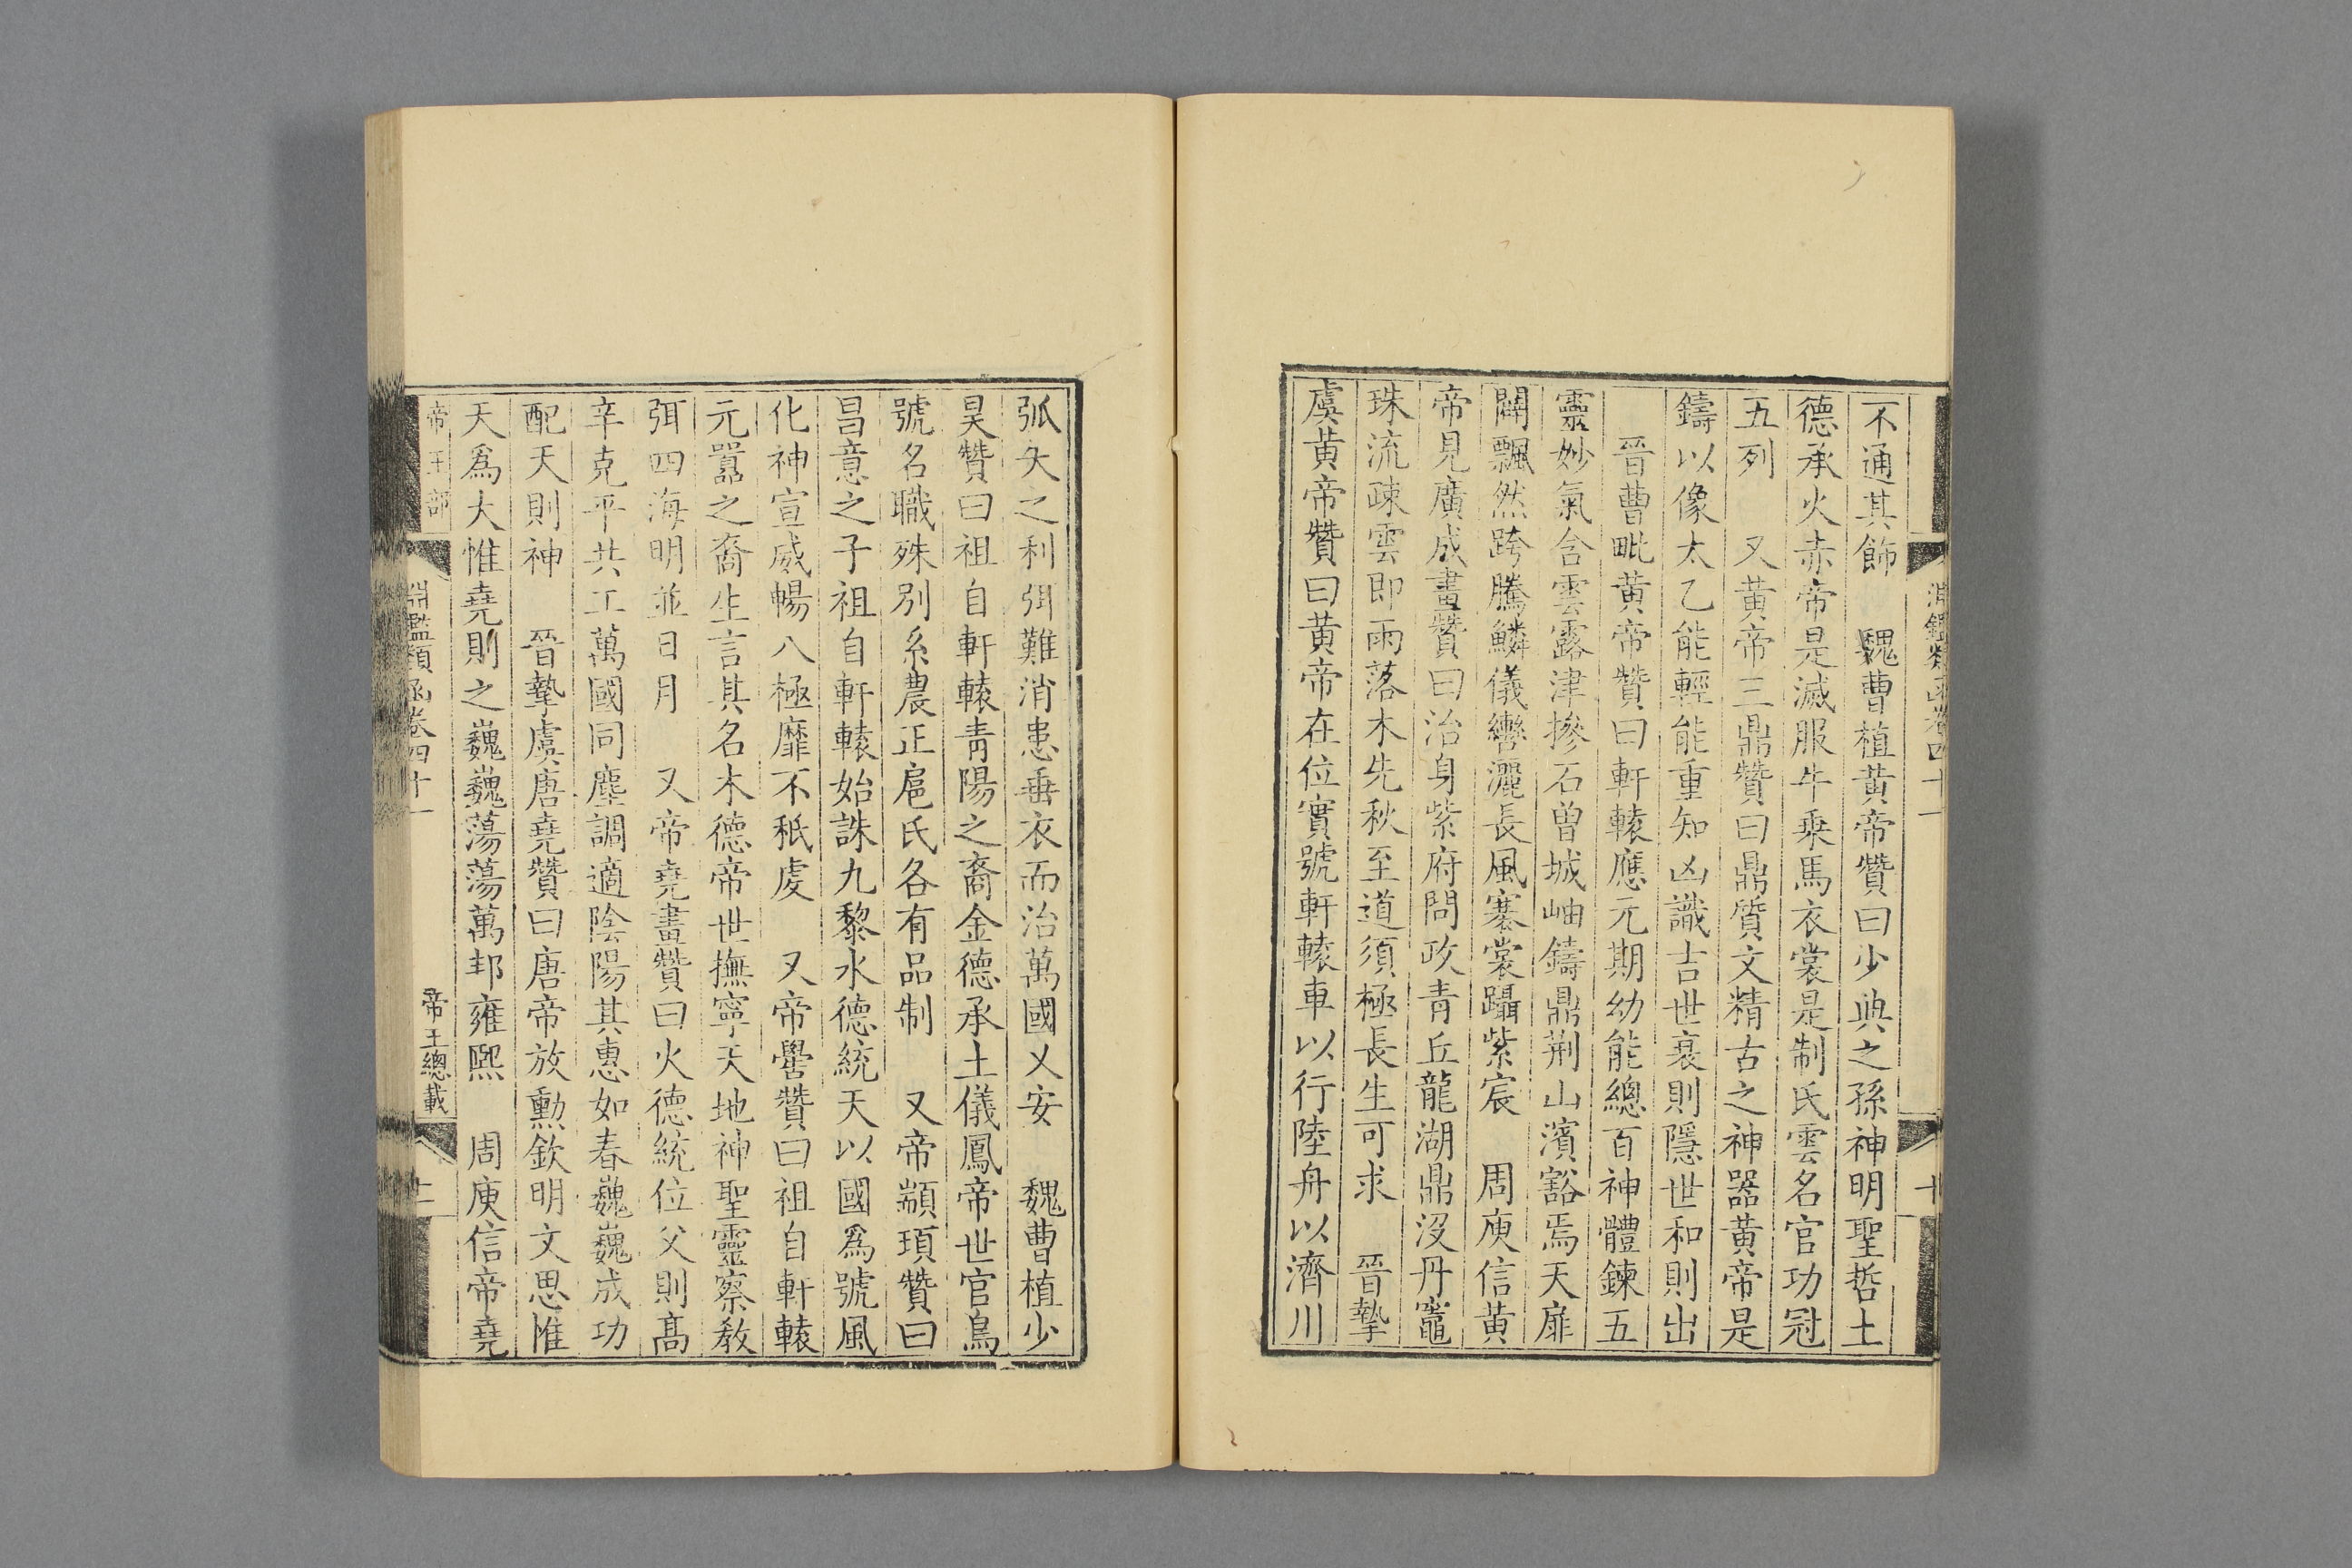 淵鑑類函卷四十一
不通其飾　魏曹植黃帝贊曰少典之孫神明聖哲土
德承火赤帝是滅服牛乘馬衣裳是制氏雲名官功冠
五列　又黃帝三鼎贊曰鼎質文精古之神器黃帝是
鑄以像太乙能輕能重知凶識吉世衰則隱世和則出
晉曹毗黃帝贊曰軒轅應元期幼能總百神體鍊五
靈妙氣含雲露津摻石曾城岫鑄鼎荆山濱豁焉天扉
闢飄然跨騰鱗儀轡灑長風褰裳躡紫宸　周庾信黃
帝見廣成畫贊曰治身紫府問政青丘龍湖鼎沒丹竈
珠流疎雲即雨落木先秋至道須極長生可求　晉摯
虞黃帝贊曰黃帝在位實號軒轅車以行陸舟以濟川
弧矢之利弭難消患垂衣而治萬國乂安　魏曹植少
昊贊曰祖自軒轅青陽之裔金德承土儀鳳帝世官鳥
號名職殊別系農正扈氏各有品制　又帝顓頊贊曰
昌意之子祖自軒轅始誅九黎水德統天以國爲號風
化神宣威暢八極靡不秖虔　又帝嚳贊曰祖自軒轅
元囂之裔生言其名木德帝世撫寧天地神聖靈察教
弭四海明並日月　又帝堯畫贊曰火德統位父則高
辛克平共工萬國同塵調適陰陽其惠如春巍巍成功
配天則神　晉摯虞唐堯贊曰唐帝放勲欽明文思惟
天爲大惟堯則之巍巍蕩蕩萬邦雍熙　周庾信帝堯
帝王部
淵鑑類函卷四十一
帝王總載